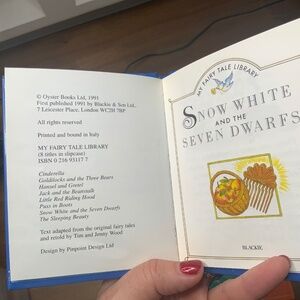 © Oyster Books Ltd, 1991
First published 1991 by Blackie & Son Ltd,
7 Leicester Place, London WC2H 7BP
All rights reserved
Printed and bound in Italy
MY FAIRY TALE LIBRARY
(8 titles in slipcase)
ISBN 0 216 93117 7
Cinderella
Goldilocks and the Three Bears
Hansel and Gretel
Jack and the Beanstalk
Little Red Riding Hood
Puss in Boots
Snow White and the Seven Dwarfs
The Sleeping Beauty
Text adapted from the original fairy tales
and retold by Tim and Jenny Wood
Design by Pinpoint Design Ltd
MY FAIRY TALE LIBRARY
SNOW WHITE
AND THE
SEVEN DWARFS
BLACKIE